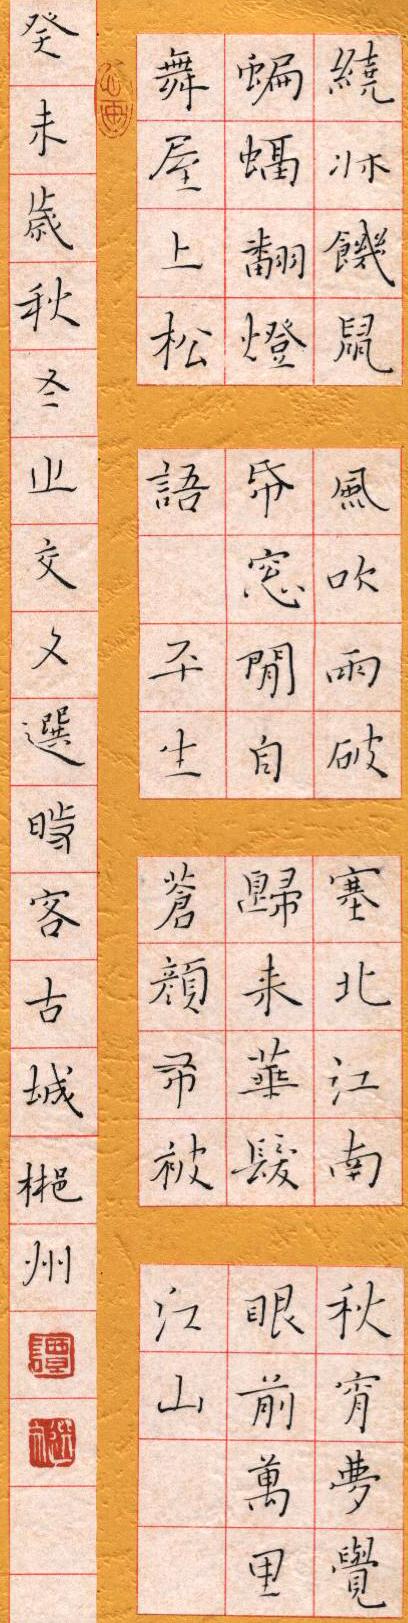 繞牀饑鼠
蝙蝠翻燈
舞屋上松
風吹雨破
帋窓閒自
語 平生
塞北江南
歸來華髮
蒼顏布被
秋宵夢覺
眼前萬里
江山
癸未歲秋冬之交文選時客古城郴州
譚